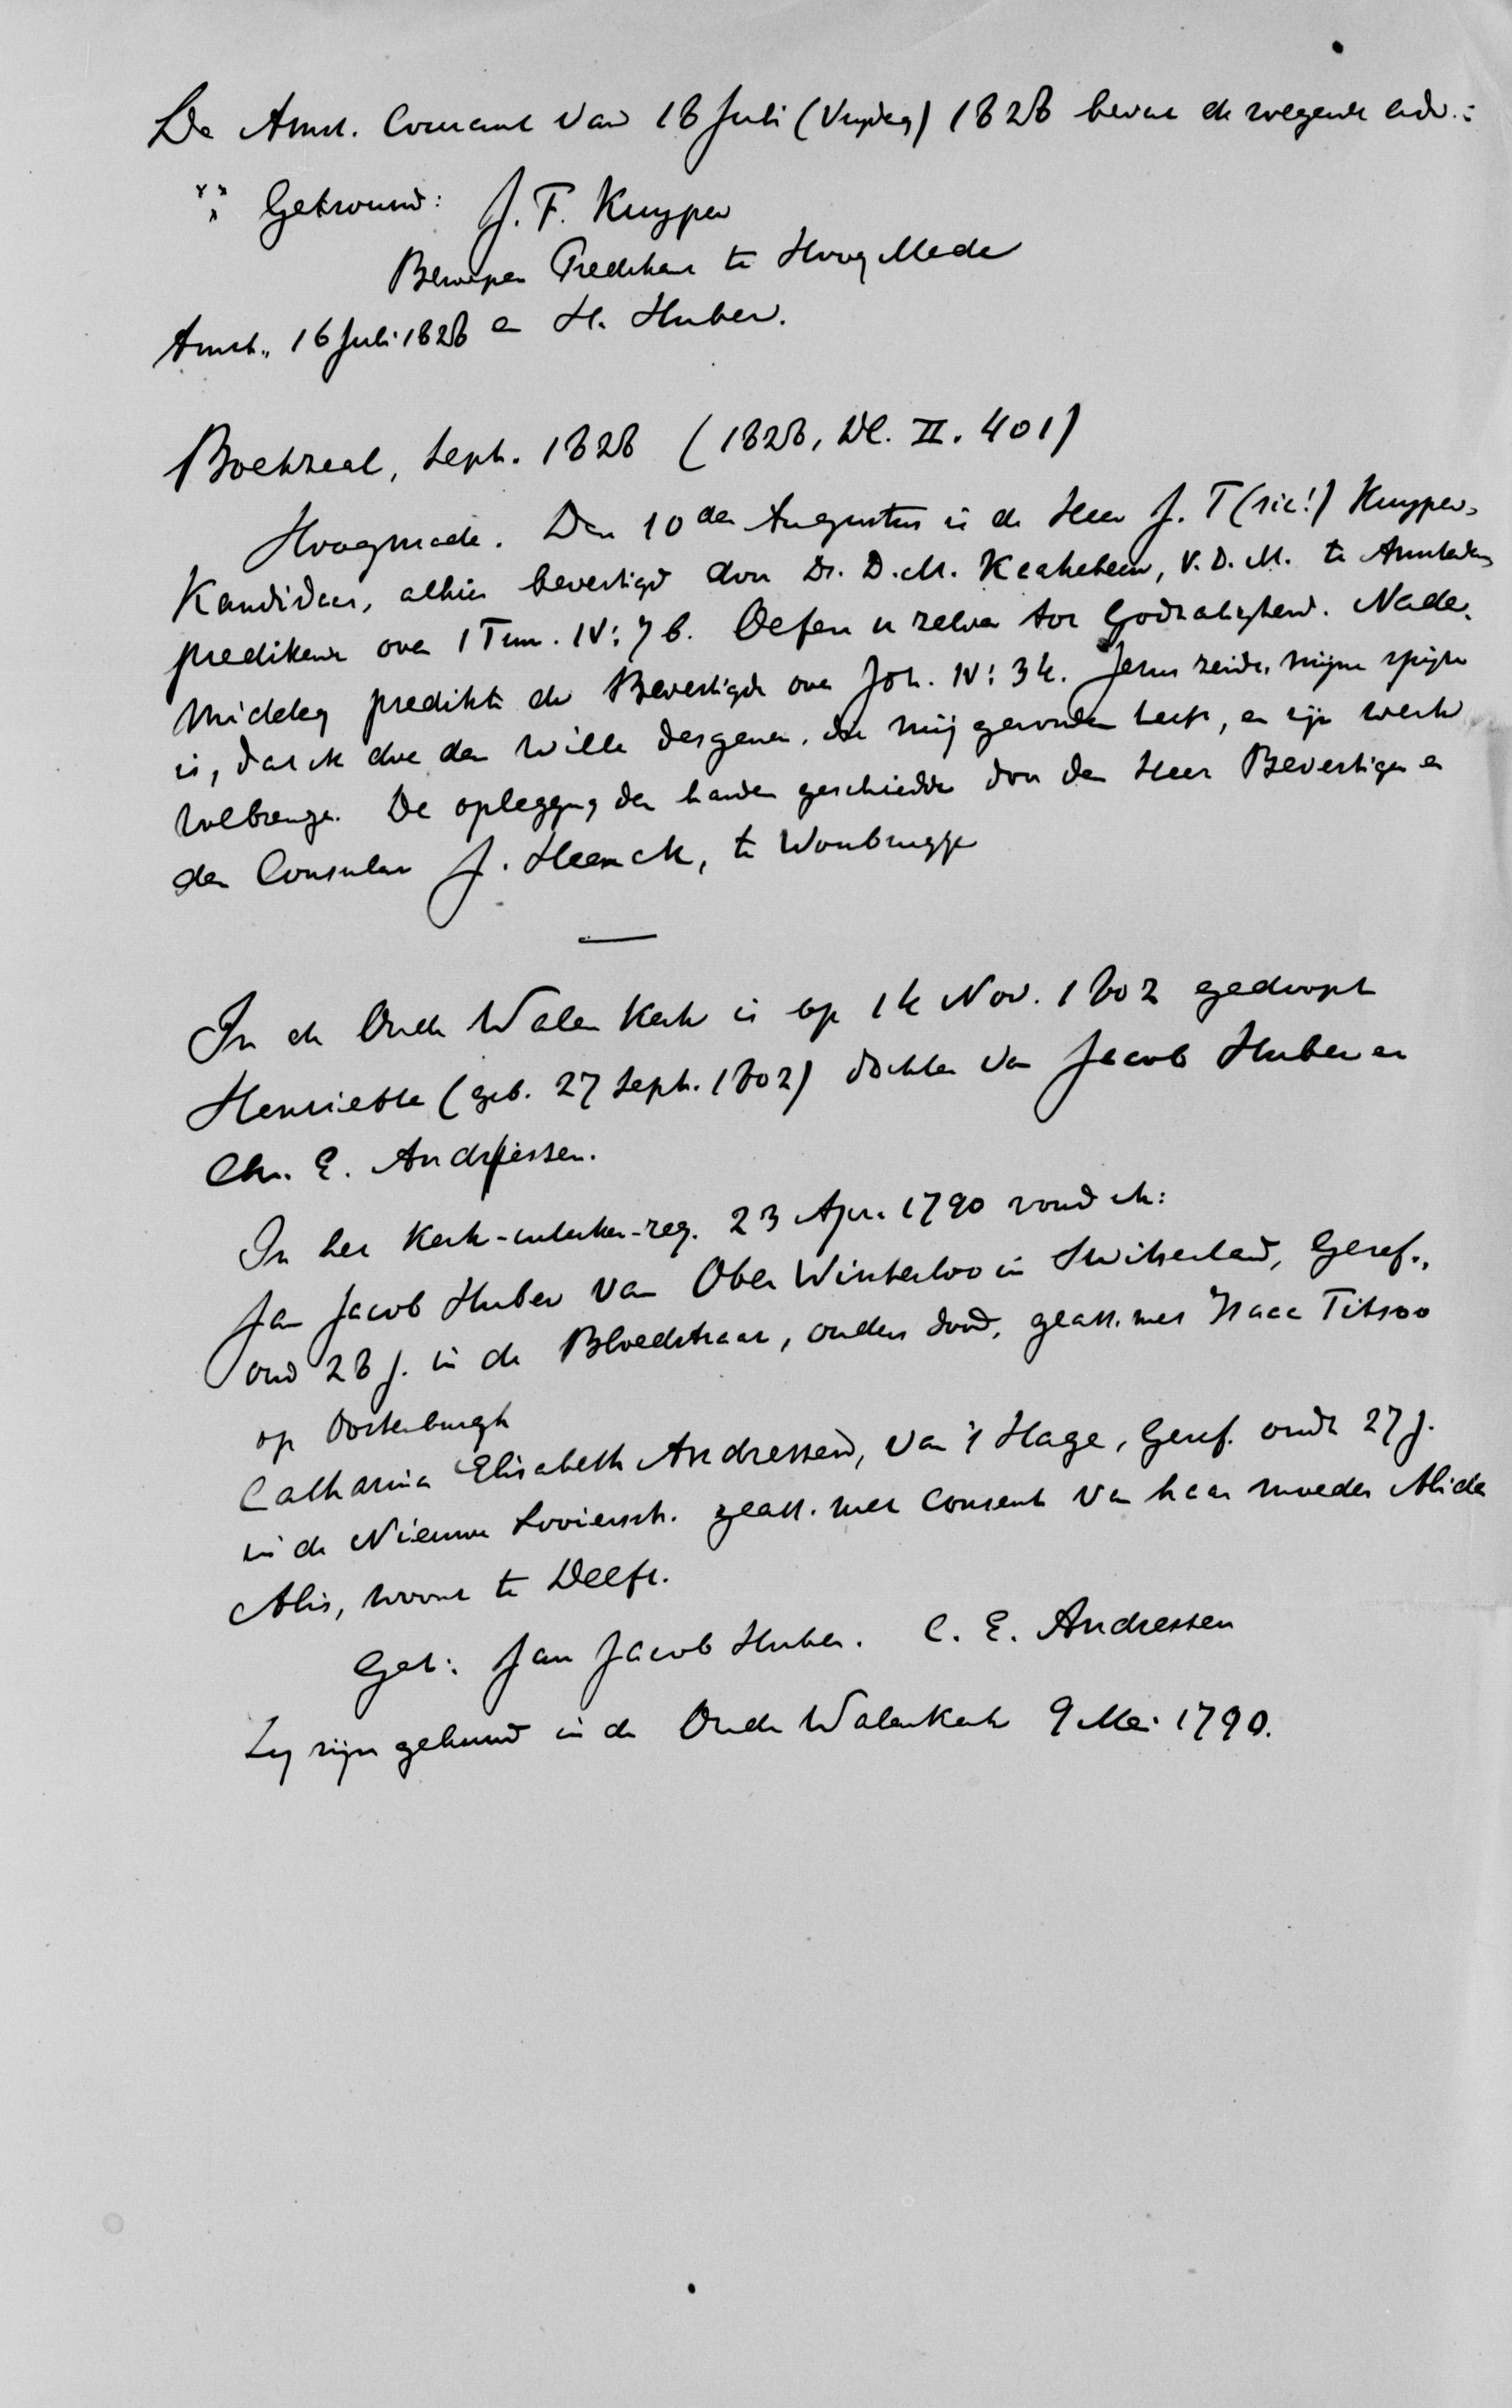 De Amst. Courant van 18 Juli (Vrijdag) 1828 bevat de volgende adv.:
Getrouwd: J. F. Kuyper
Beroepen Predikant te Hoog Made
Amst., 16 Juli 1828 en H. Huber.
Boekzaal, Sept. 1828 (1828, Dl. II. 401)
Hoogmade. Den 10den Augustus is de Heer J. T (sic!) Kuyper,
Kandidaat, alhier bevestigd door Ds. D. M. V. D. M. te Amsterdam
predikende over 1 Tim. IV: 7b. Oefen u zelven tot Godzaligheid. Nade
middag predikte de Bevestigde over Joh. IV: 34. Jezus zeide, mijne spijze
is, dat ik doe den wille desgenen, die mij gezonden heeft, en zijn werk
volbrenge. De oplegging der handen geschiedde door den Heer Bevestiger en
den Consulent J. te Woubrugge
In de Oude Walen Kerk is op 14 Nov. 1802 gedoopt
Henriette (geb. 27 Sept. 1802) dochter van Jacob Huber en
Chr. E. Andriessen.
In het Kerk-inteken-reg. 23 Apr. 1790 vond ik:
Jan Jacob Huber van Ober Winterloo in Switserland, Geref.,
oud 28 j. in de Bloedstraat, ouders dood, geass. met Isaac Titsoo
op Oostenburgh
Catharina Elisabeth Andressen, van 's Hage, Geref. oudt 27 j.
in de Nieuwe Looierstr. geass. met consent van haar moeder Alida
Alis, woont te Delft.
Get: Jan Jacob Huber. C. E. Andressen
Zij zijn getrouwd in de Oude Walenkerk 9 Mei 1790.